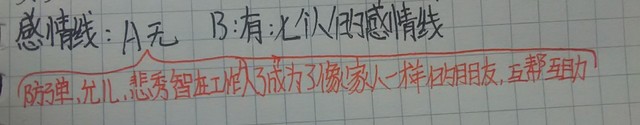 感情线:A无 B:有:七个人的感情线
防弹,允儿,悲秀智在工作久了成为了像家人一样的朋友,互帮互助